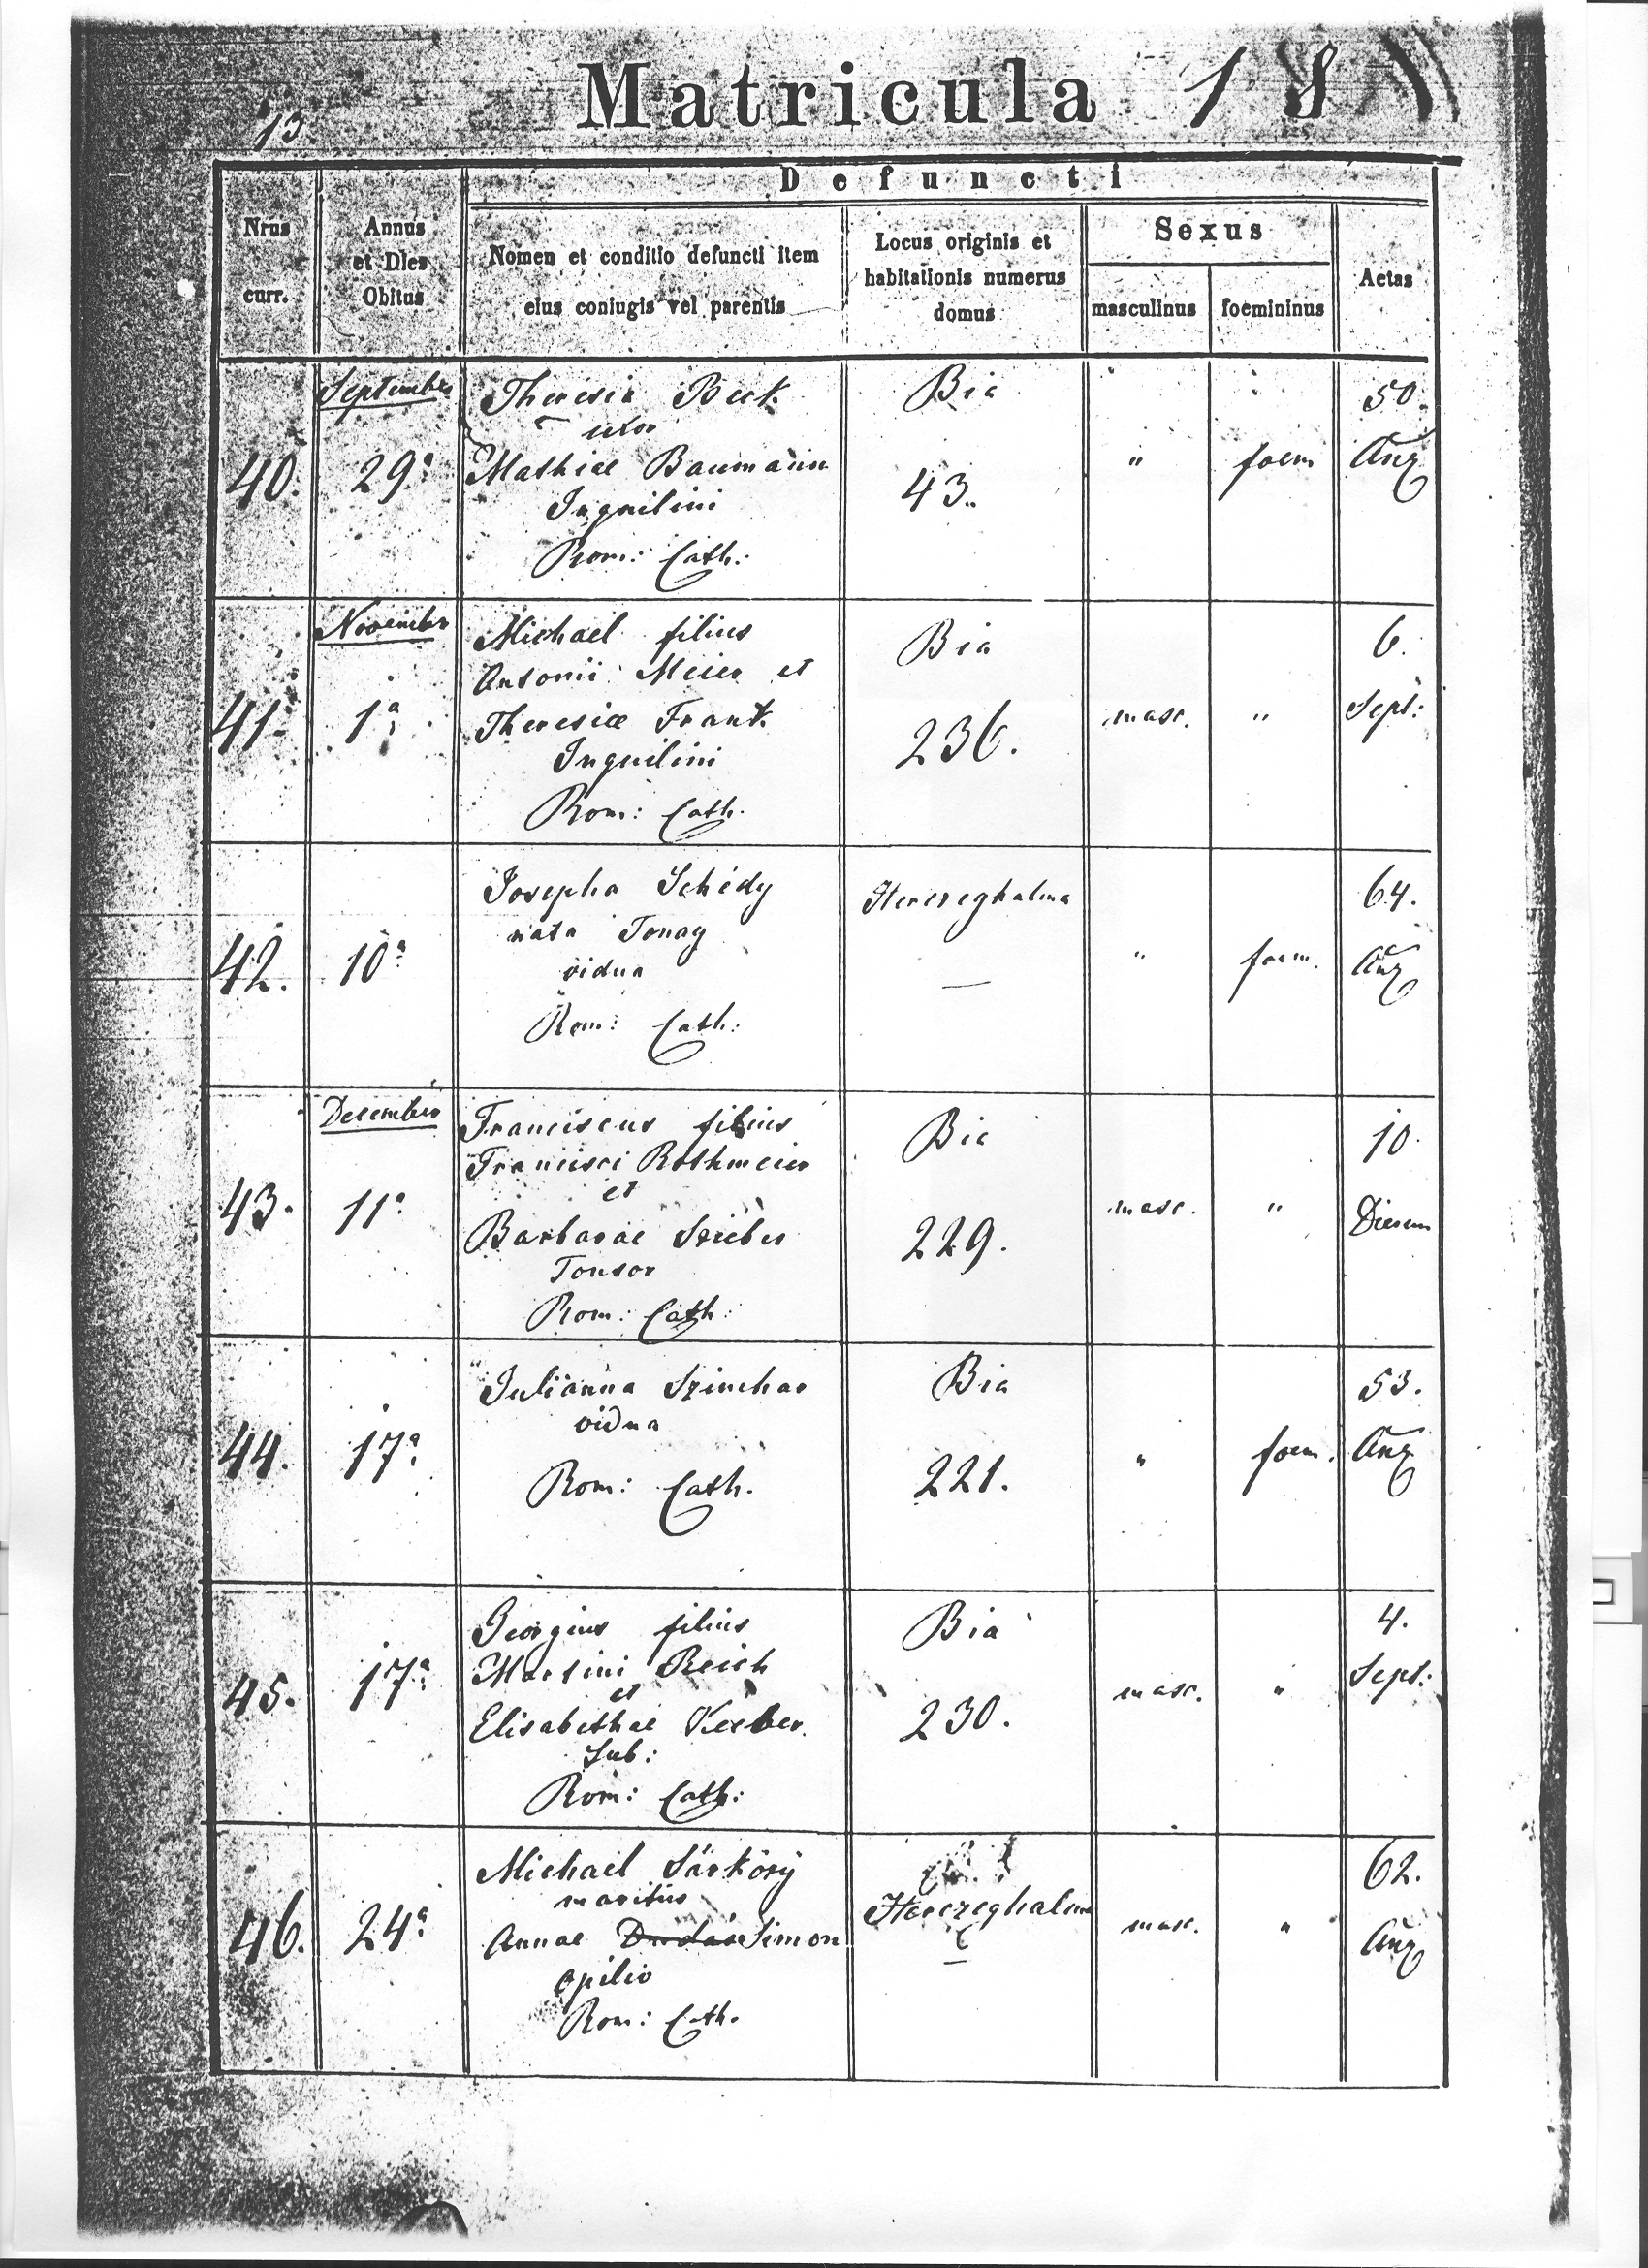 Matricula 18
13
Defuncti
Nrus curr.
Annus et Dies Obitus
Nomen et conditio defuncti item eius coniugis vel parentis
Locus originis et habitationis numerus domus
Sexus
masculinus foemininus
Aetas
Septembr
Theresia Beck Bia 50.
uxor
40. 29a Mathiae Baumann 43. " foem Ang
Inquilini
Rom: Cath:
Novembr
Michael filius Bia 6.
Antonii Meier et
41. 1a Theresiae Frank 236. masc. " Sept:
Inquilini
Rom: Cath.
Josepha Schédy Herczeghalma 64.
nata Tonay
42. 10a vidua — " foem. Ang
Rom: Cath:
December
Franciscus filius Bia 10.
Francisci Rothmeier
et
43. 11a Barbarae Szieber 229. masc. " Dierum
Tonsor
Rom: Cath:
Julianna Szinchar Bia 53.
vidua
44. 17a Rom: Cath. 221. " foem. Ang
Georgius filius Bia 4.
Martini Reich
et
45. 17a Elisabethae Keeber 230. masc. " Sept:
Sub:
Rom: Cath:
Michael Sárközÿ 62.
maritus Herczeghalma
46. 24a Annae Dudás Simon — masc. " Ang
opilio
Rom: Cath.